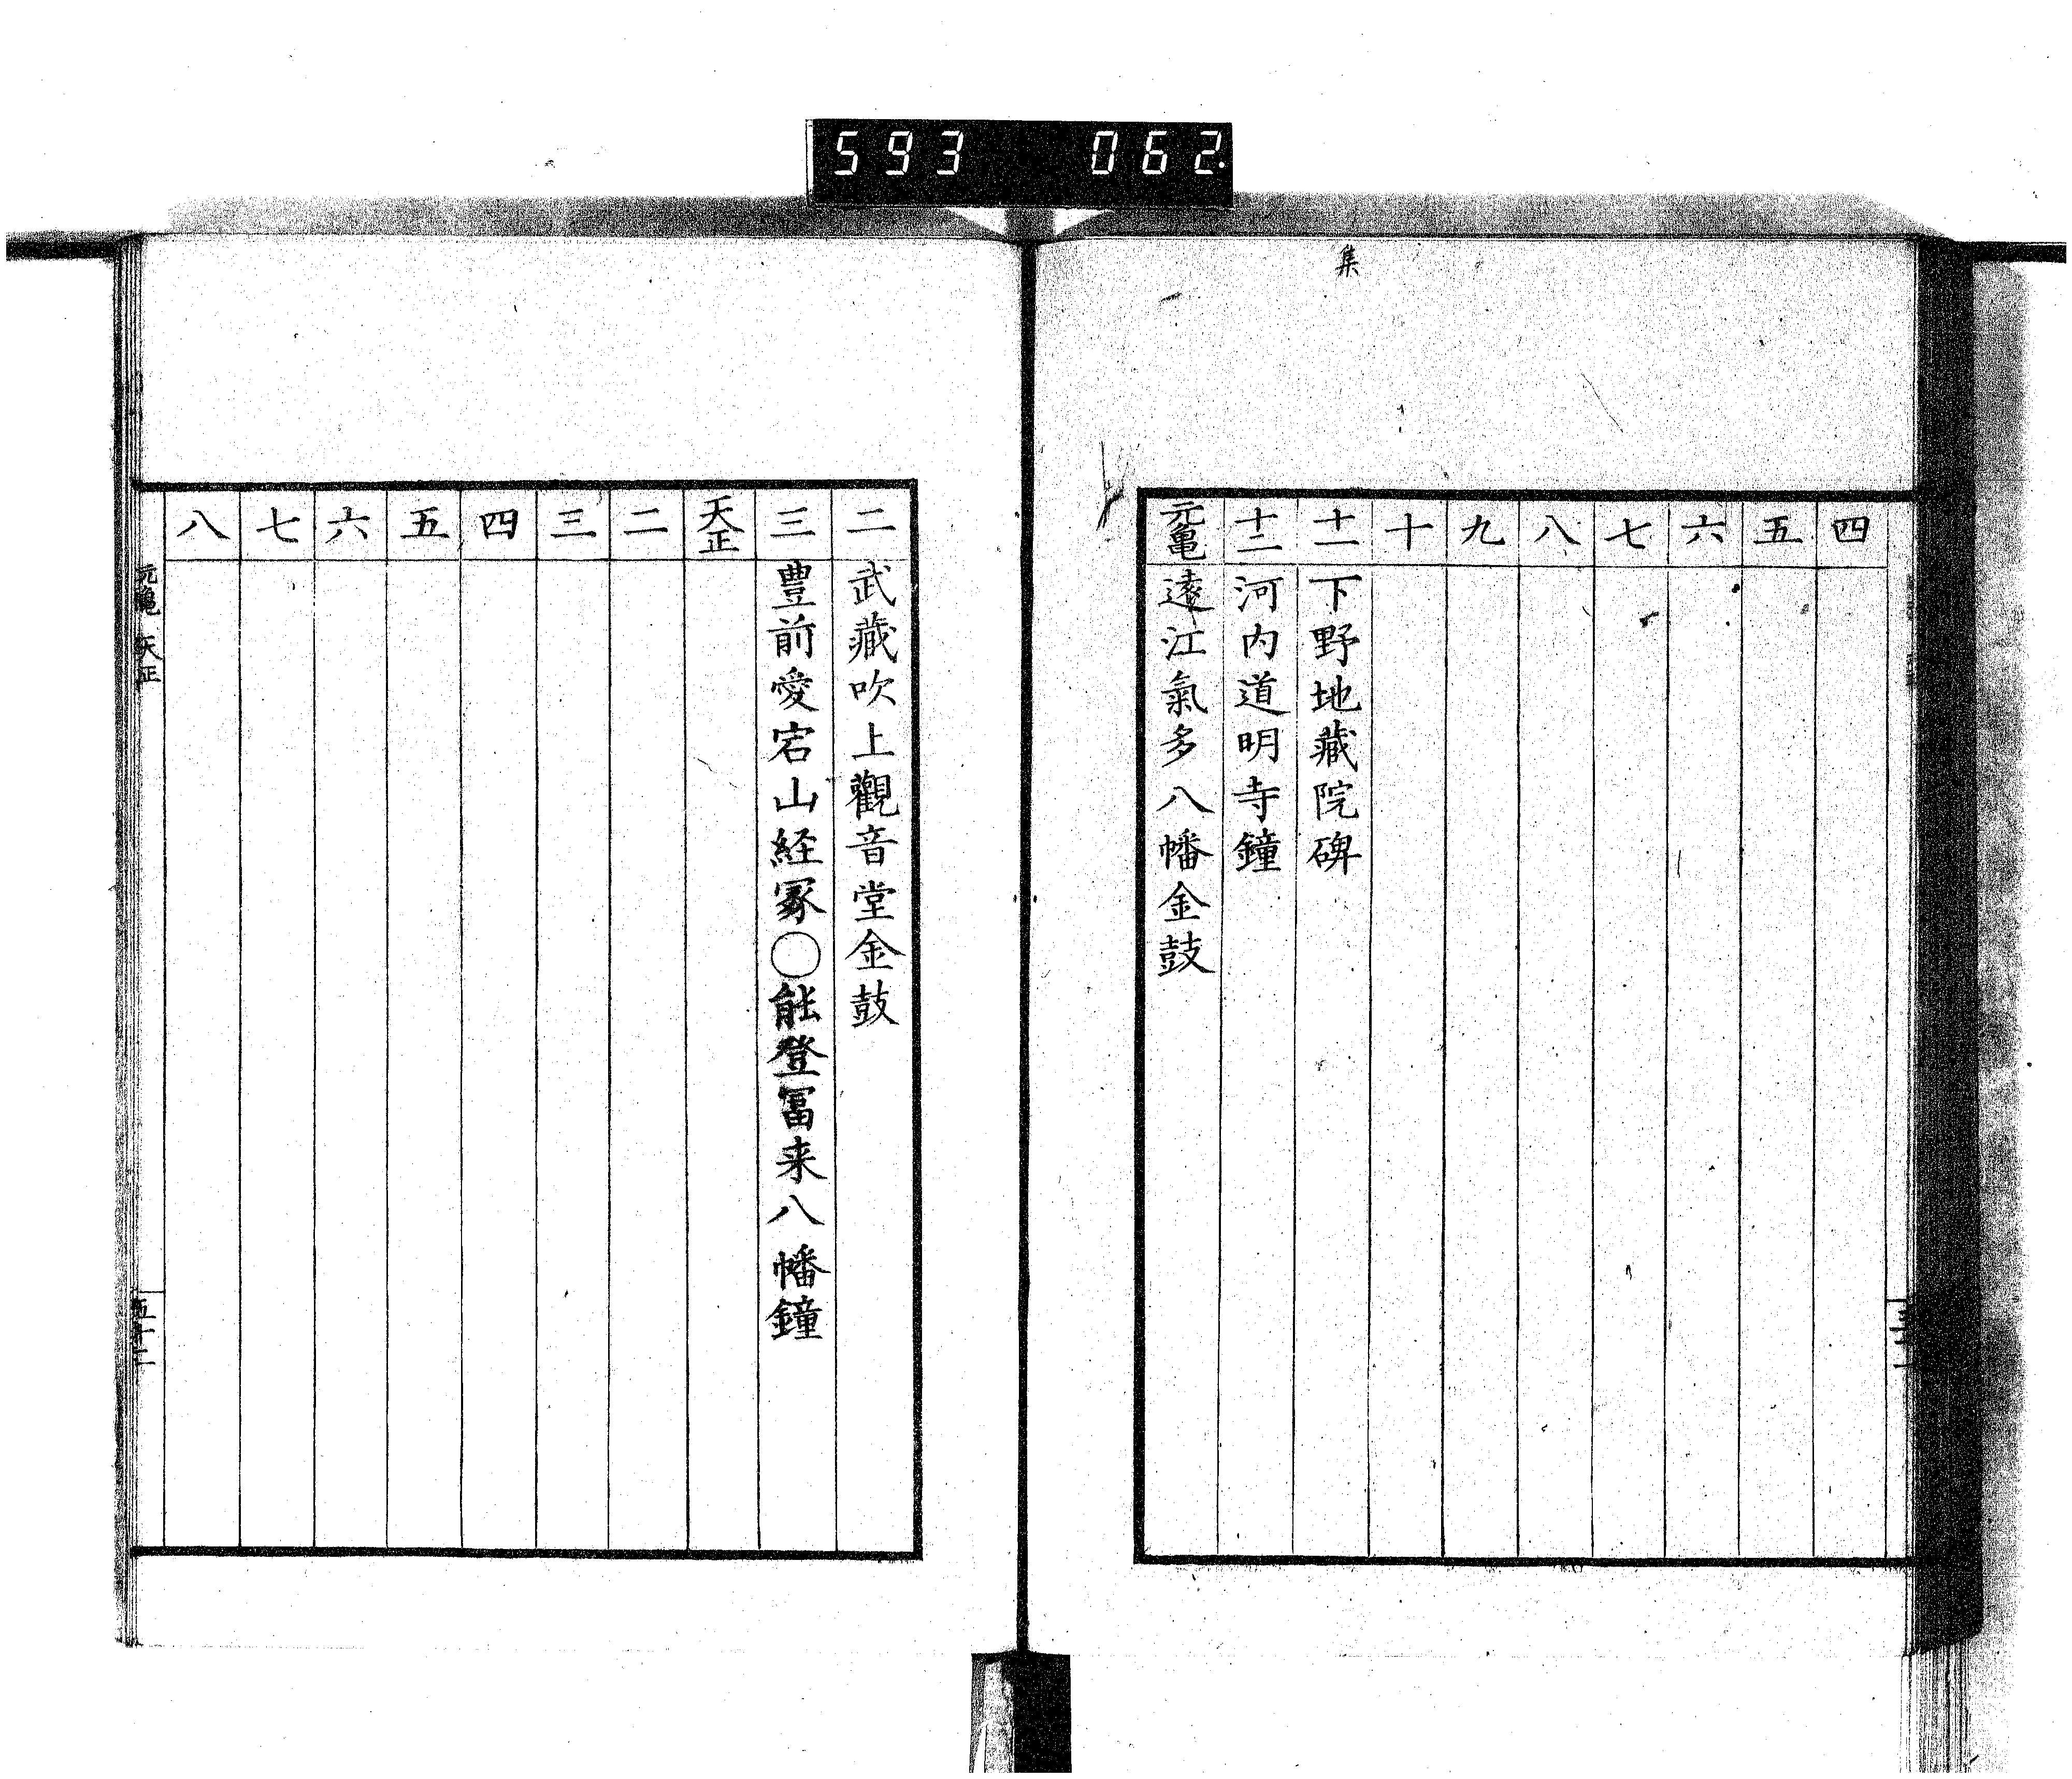 593 062.
集
四
五
六
七
八
九
十
十一 下野地藏院碑
十二 河内道明寺鐘
元亀 遠江氣多八幡金鼓
二 武藏吹上觀音堂金鼓
三 豊前愛宕山経冢○能登冨来八幡鐘
天正
二
三
四
五
六
七
八
元亀 天正
五十二